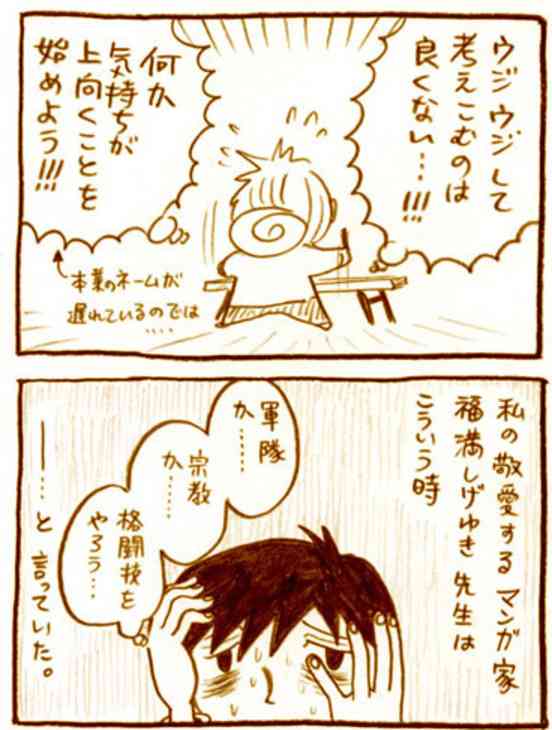 ウジウジして
考えこむのは
良くない…!!!
何か
気持ちが
上向くことを
始めよう!!!
本業のネームが
遅れているのでは
‥‥
私の敬愛するマンガ家
福満しげゆき先生は
こういう時
軍隊
か……
宗教
か……
格闘技を
やろう…
――…と言っていた。